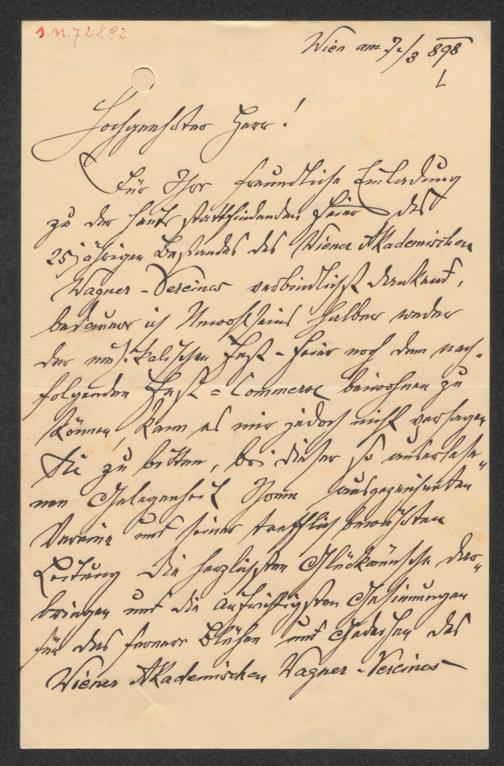 I.N. 72892
Wien am 7/3 898
Hochgeehrter Herr!
Für Ihre freundliche Einladung
zu der heute stattfindenden Feier des
25jährigen Bestandes des Wiener Akademischen
Wagner-Vereines verbindlichst dankend,
bedauere ich Unwohlseins halber weder
der musikalischen Fest-Feier noch dem nach-
folgenden Fest-Commerse beiwohnen zu
können, kann es mir jedoch nicht versagen
Sie zu bitten, bei dieser so
nen Gelegenheit Ihrem ausgezeichneten
Vereine und seiner trefflich bewährten
Leitung die herzlichsten Glückwünsche dar-
bringen und die aufrichtigsten Gesinnungen
für das fernere Blühen und Gedeihen des
Wiener Akademischen Wagner-Vereines